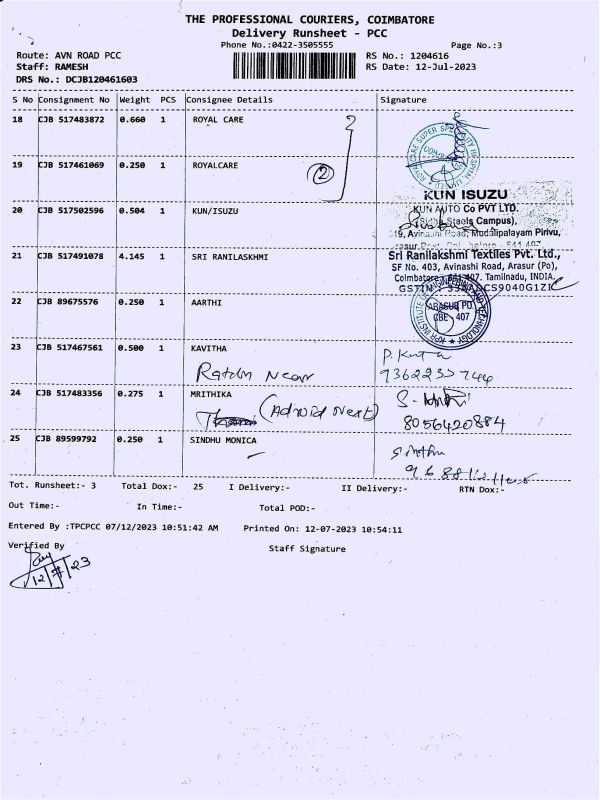 THE PROFESSIONAL COURIERS, COIMBATORE
Delivery Runsheet - PCC
Phone No.:0422-3505555 Page No.:3
Route: AVN ROAD PCC RS No.: 1204616
Staff: RAMESH RS Date: 12-Jul-2023
DRS No.: DCJB120461603
S No Consignment No Weight PCS Consignee Details Signature
18 CJB 517483872 0.660 1 ROYAL CARE
19 CJB 517461069 0.250 1 ROYALCARE
2
KUN ISUZU
20 CJB 517502596 0.504 1 KUN/ISUZU KUN AUTO Co PVT LTD.
Steels Campus),
19, Avinashi Road, Mudalipalayam Pirivu,
21 CJB 517491078 4.145 1 SRI RANILASKHMI Sri Ranilakshmi Textiles Pvt. Ltd.,
SF No. 403, Avinashi Road, Arasur (Po),
Coimbatore - 641 407. Tamilnadu, INDIA.
22 CJB 89675576 0.250 1 AARTHI
KPR INSTITUTE OF ENGINEERING AND TECHNOLOGY
ARASUR PO.
CBE - 407
23 CJB 517467561 0.500 1 KAVITHA
Near
24 CJB 517483356 0.275 1 MRITHIKA
8056420884
25 CJB 89599792 0.250 1 SINDHU MONICA
Sindhu
Tot. Runsheet:- 3 Total Dox:- 25 I Delivery:- II Delivery:- RTN Dox:-
Out Time:- In Time:- Total POD:-
Entered By :TPCPCC 07/12/2023 10:51:42 AM Printed On: 12-07-2023 10:54:11
Verified By Staff Signature
12/7/23